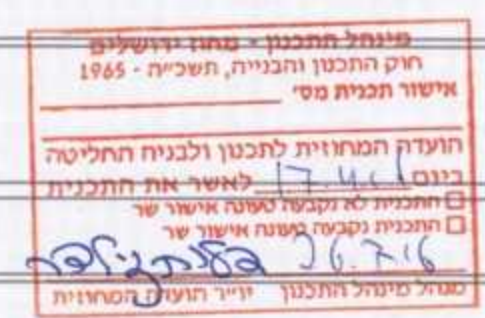 מינהל התכנון - מחוז ירושלים
חוק התכנון והבנייה, תשכ"ה - 1965
אישור תכנית מס'
הועדה המחוזית לתכנון ולבניה החליטה
ביום לאשר את התכנית
☐ התכנית לא נקבעה טעונה אישור שר
☐ התכנית נקבעה טעונה אישור שר
26.7.16
מנהל מינהל התכנון יו"ר הועדה המחוזית